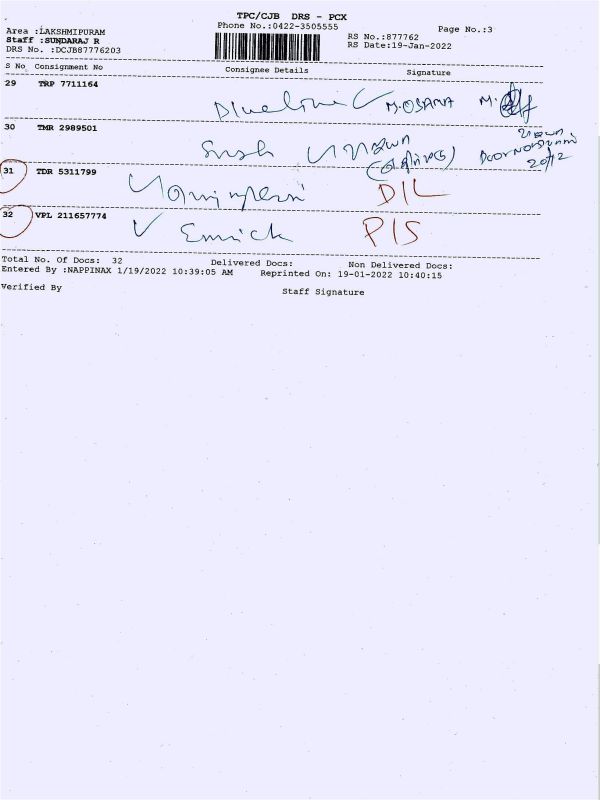 TPC/CJB DRS - PCX
Phone No.:0422-3505555
Page No.:3
Area :LAKSHMIPURAM
Staff :SUNDARAJ R
RS No.:877762
DRS No. :DCJB87776203
RS Date:19-Jan-2022
S No Consignment No Consignee Details Signature
29 TRP 7711164
M.
30 TMR 2989501
31 TDR 5311799
DIL
32 VPL 211657774
PIS
Total No. Of Docs: 32 Delivered Docs: Non Delivered Docs:
Entered By :NAPPINAX 1/19/2022 10:39:05 AM Reprinted On: 19-01-2022 10:40:15
Verified By Staff Signature